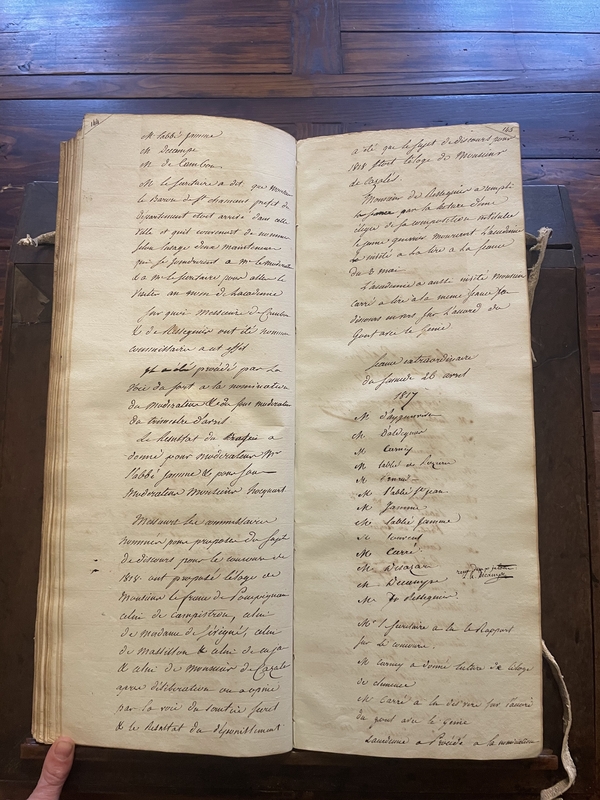 144
M l'abbé Jamme
M Decampe
M de Cambon
M le secrétaire a dit que Monsieur
le Baron de St Chamant préfet du
Département étoit arrivé dans cette
ville et qu'il convenoit de nommer
selon l'usage deux mainteneurs
qui se joindroient a Mr le modérateur
& a Mr le secrétaire pour aller le
visiter au nom de l'académie
Sur quoi Messieurs de Cambon
& de Resseguier ont été nommés
commissaires a cet effet
procédé par la
voie du sort a la nomination
du modérateur & du sous modérateur
du trimestre d'avril
Le Résultat du a
donné pour modérateur Mr
l'abbé Jamme & pour sous
modérateur Monsieur
Messieurs les commissaires
nommés pour proposer du sujet
de discours pour le concours de
1818 ont proposé l'éloge de
Monsieur le franc de Pompignan
celui de campistron, celui
de madame de Sévigné, celui
de Massillon & celui de cujas
& celui de Monsieur de Cazalès
après délibération on a opiné
par la voie du scrutin secret
& le Résultat du dépouillement
145
a été que le sujet de discours pour
1818 étoit l'éloge de Monsieur
de Cazalès.
Monsieur de Resseguier a rempli
la séance par la lecture d'une
élégie de sa composition intitulée
le jeune guerrier mourant L'académie
l'a invité a la lire a la séance
du 3 mai
L'académie a aussi invité Monsieur
Carré a lire a la même séance son
discours en vers sur l'accord du
Gout avec le Génie
Séance extraordinaire
du Samedi 26 avril
1817
M d'ayguesvives
M D'aldeguier
M
M l'abbé de
M
M l'abbé St jean
M Jamme
M l'abbé Jamme
M
M Carré
M
M Decampe
M de Resseguier
Mr le secrétaire a lu le Rapport
sur le concours
M a donné lecture de l'éloge
de clémence
M Carré a lu des vers sur l'accord
du gout avec le Génie
L'académie a procédé a la nomination